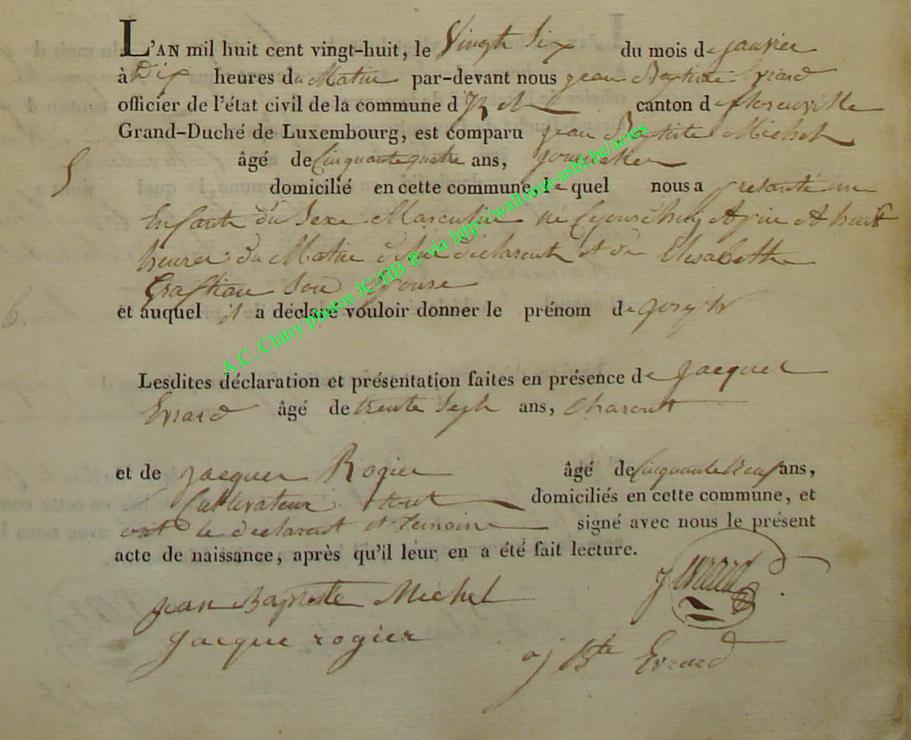 L'AN mil huit cent vingt-huit, le Vingt Six du mois de janvier
à Dix heures du Matin par-devant nous jean Baptiste Evrard
officier de l'état civil de la commune d' canton de florenville
Grand-Duché de Luxembourg, est comparu jean Baptiste Michel
5 âgé de Cinquante quatre ans, journalier
domicilié en cette commune, le quel nous a présenté un
Enfant du Sexe Masculin né Cejourd'huy à huit
heures du Matin de lui déclarant et de Elisabethe
Son Epouse
6. et auquel il a déclaré vouloir donner le prénom de joseph
Lesdites déclaration et présentation faites en présence de Jacques
Evrard âgé de trente Sept ans,
et de jacques Rogier âgé de Cinquante Neuf ans,
Cultivateur domiciliés en cette commune, et
ont le declarant et temoins signé avec nous le présent
acte de naissance, après qu'il leur en a été fait lecture.
jean Baptiste Michel
J evrard
jacque rogier
j Bte Evrard
A.C. Chiny photos JC-HB ® via http://wallonia-asbl.be/actes